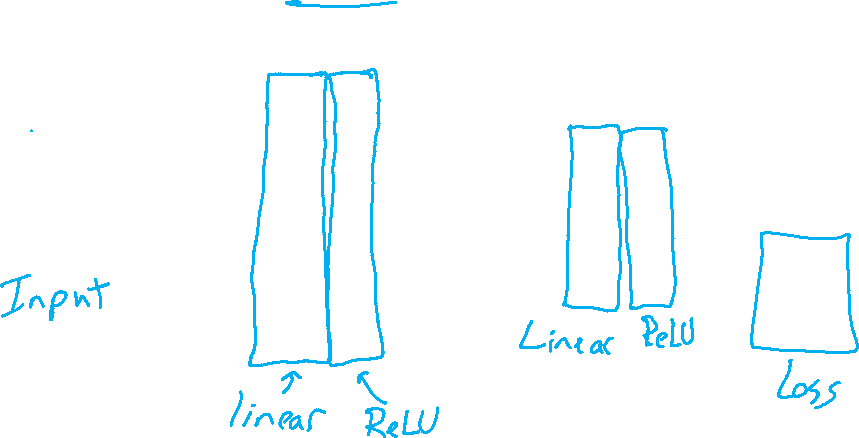 Input
linear
ReLU
Linear
ReLU
Loss